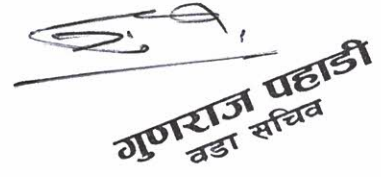 गुणराज पहाडी
वडा सचिव